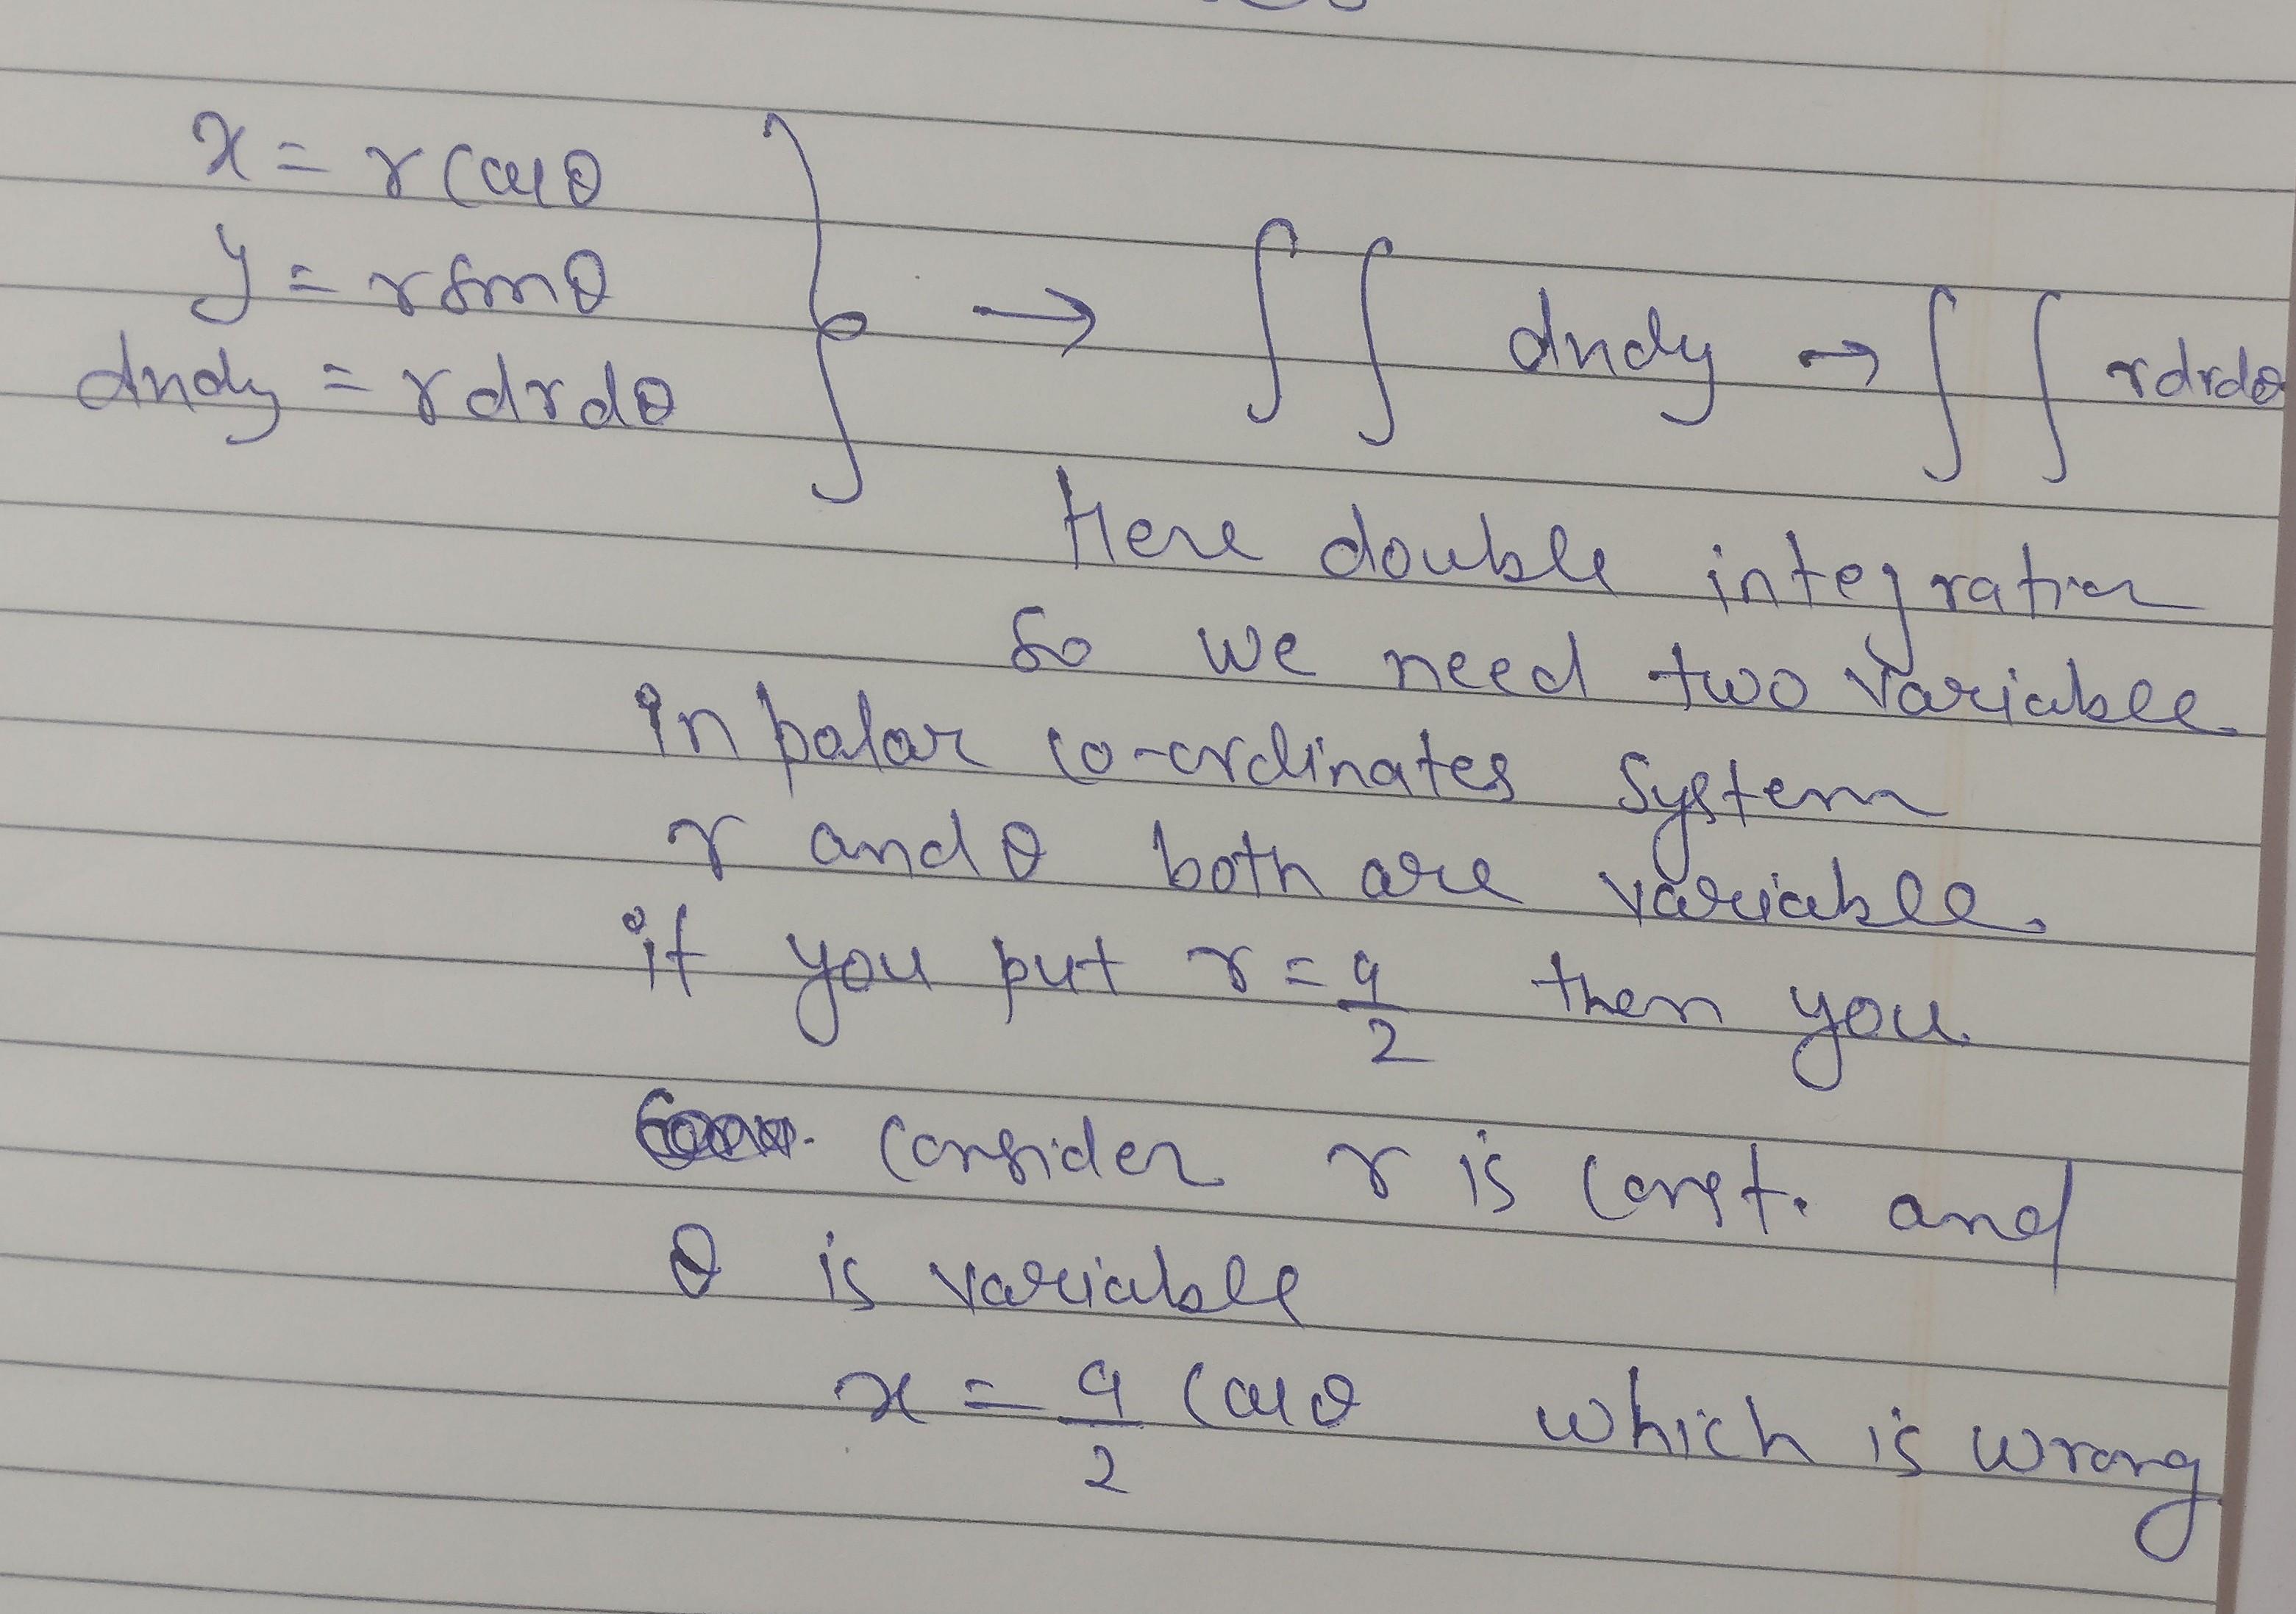 x = r cosθ
y = r sinθ
dxdy = r dr dθ } → ∫∫ dxdy → ∫∫ rdrdθ
Here double integration
So we need two variable
in polar co-ordinates system
r and θ both are variable.
if you put r = a/2 then you
consider r is const. and
θ is variable
x = a/2 cosθ which is wrong